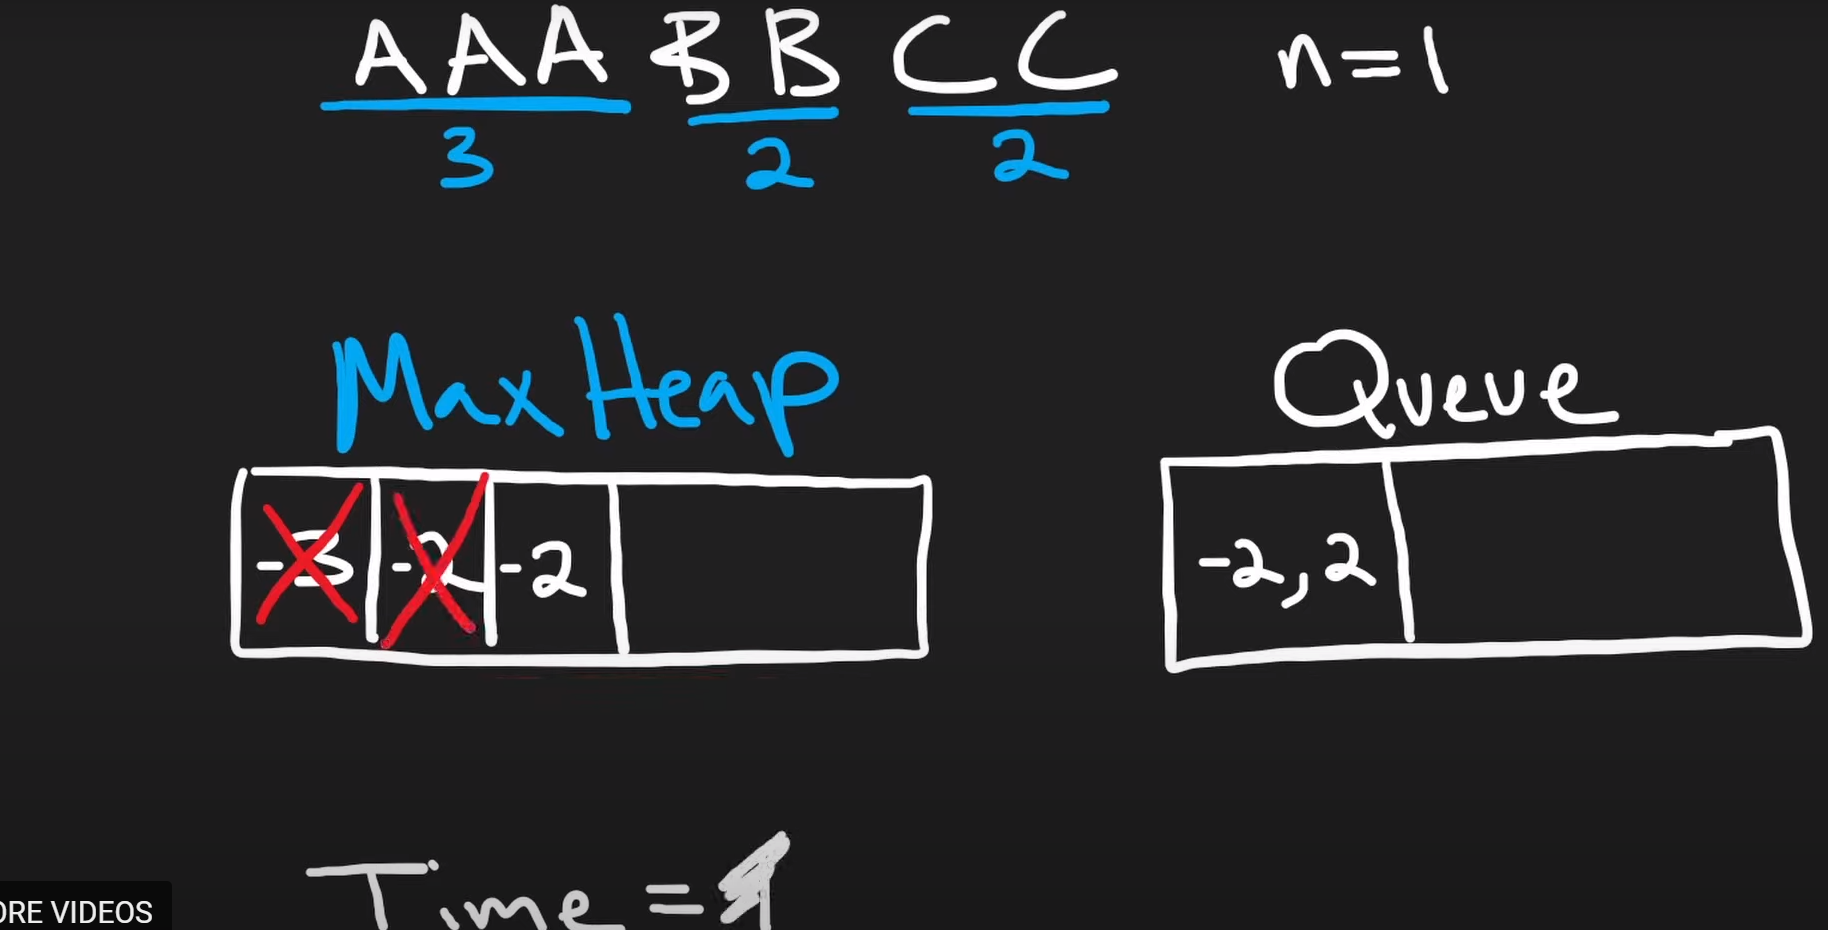 AAA BB CC n=1
3 2 2
Max Heap Queue
-3 -2 -2 -2,2
Time =
ORE VIDEOS